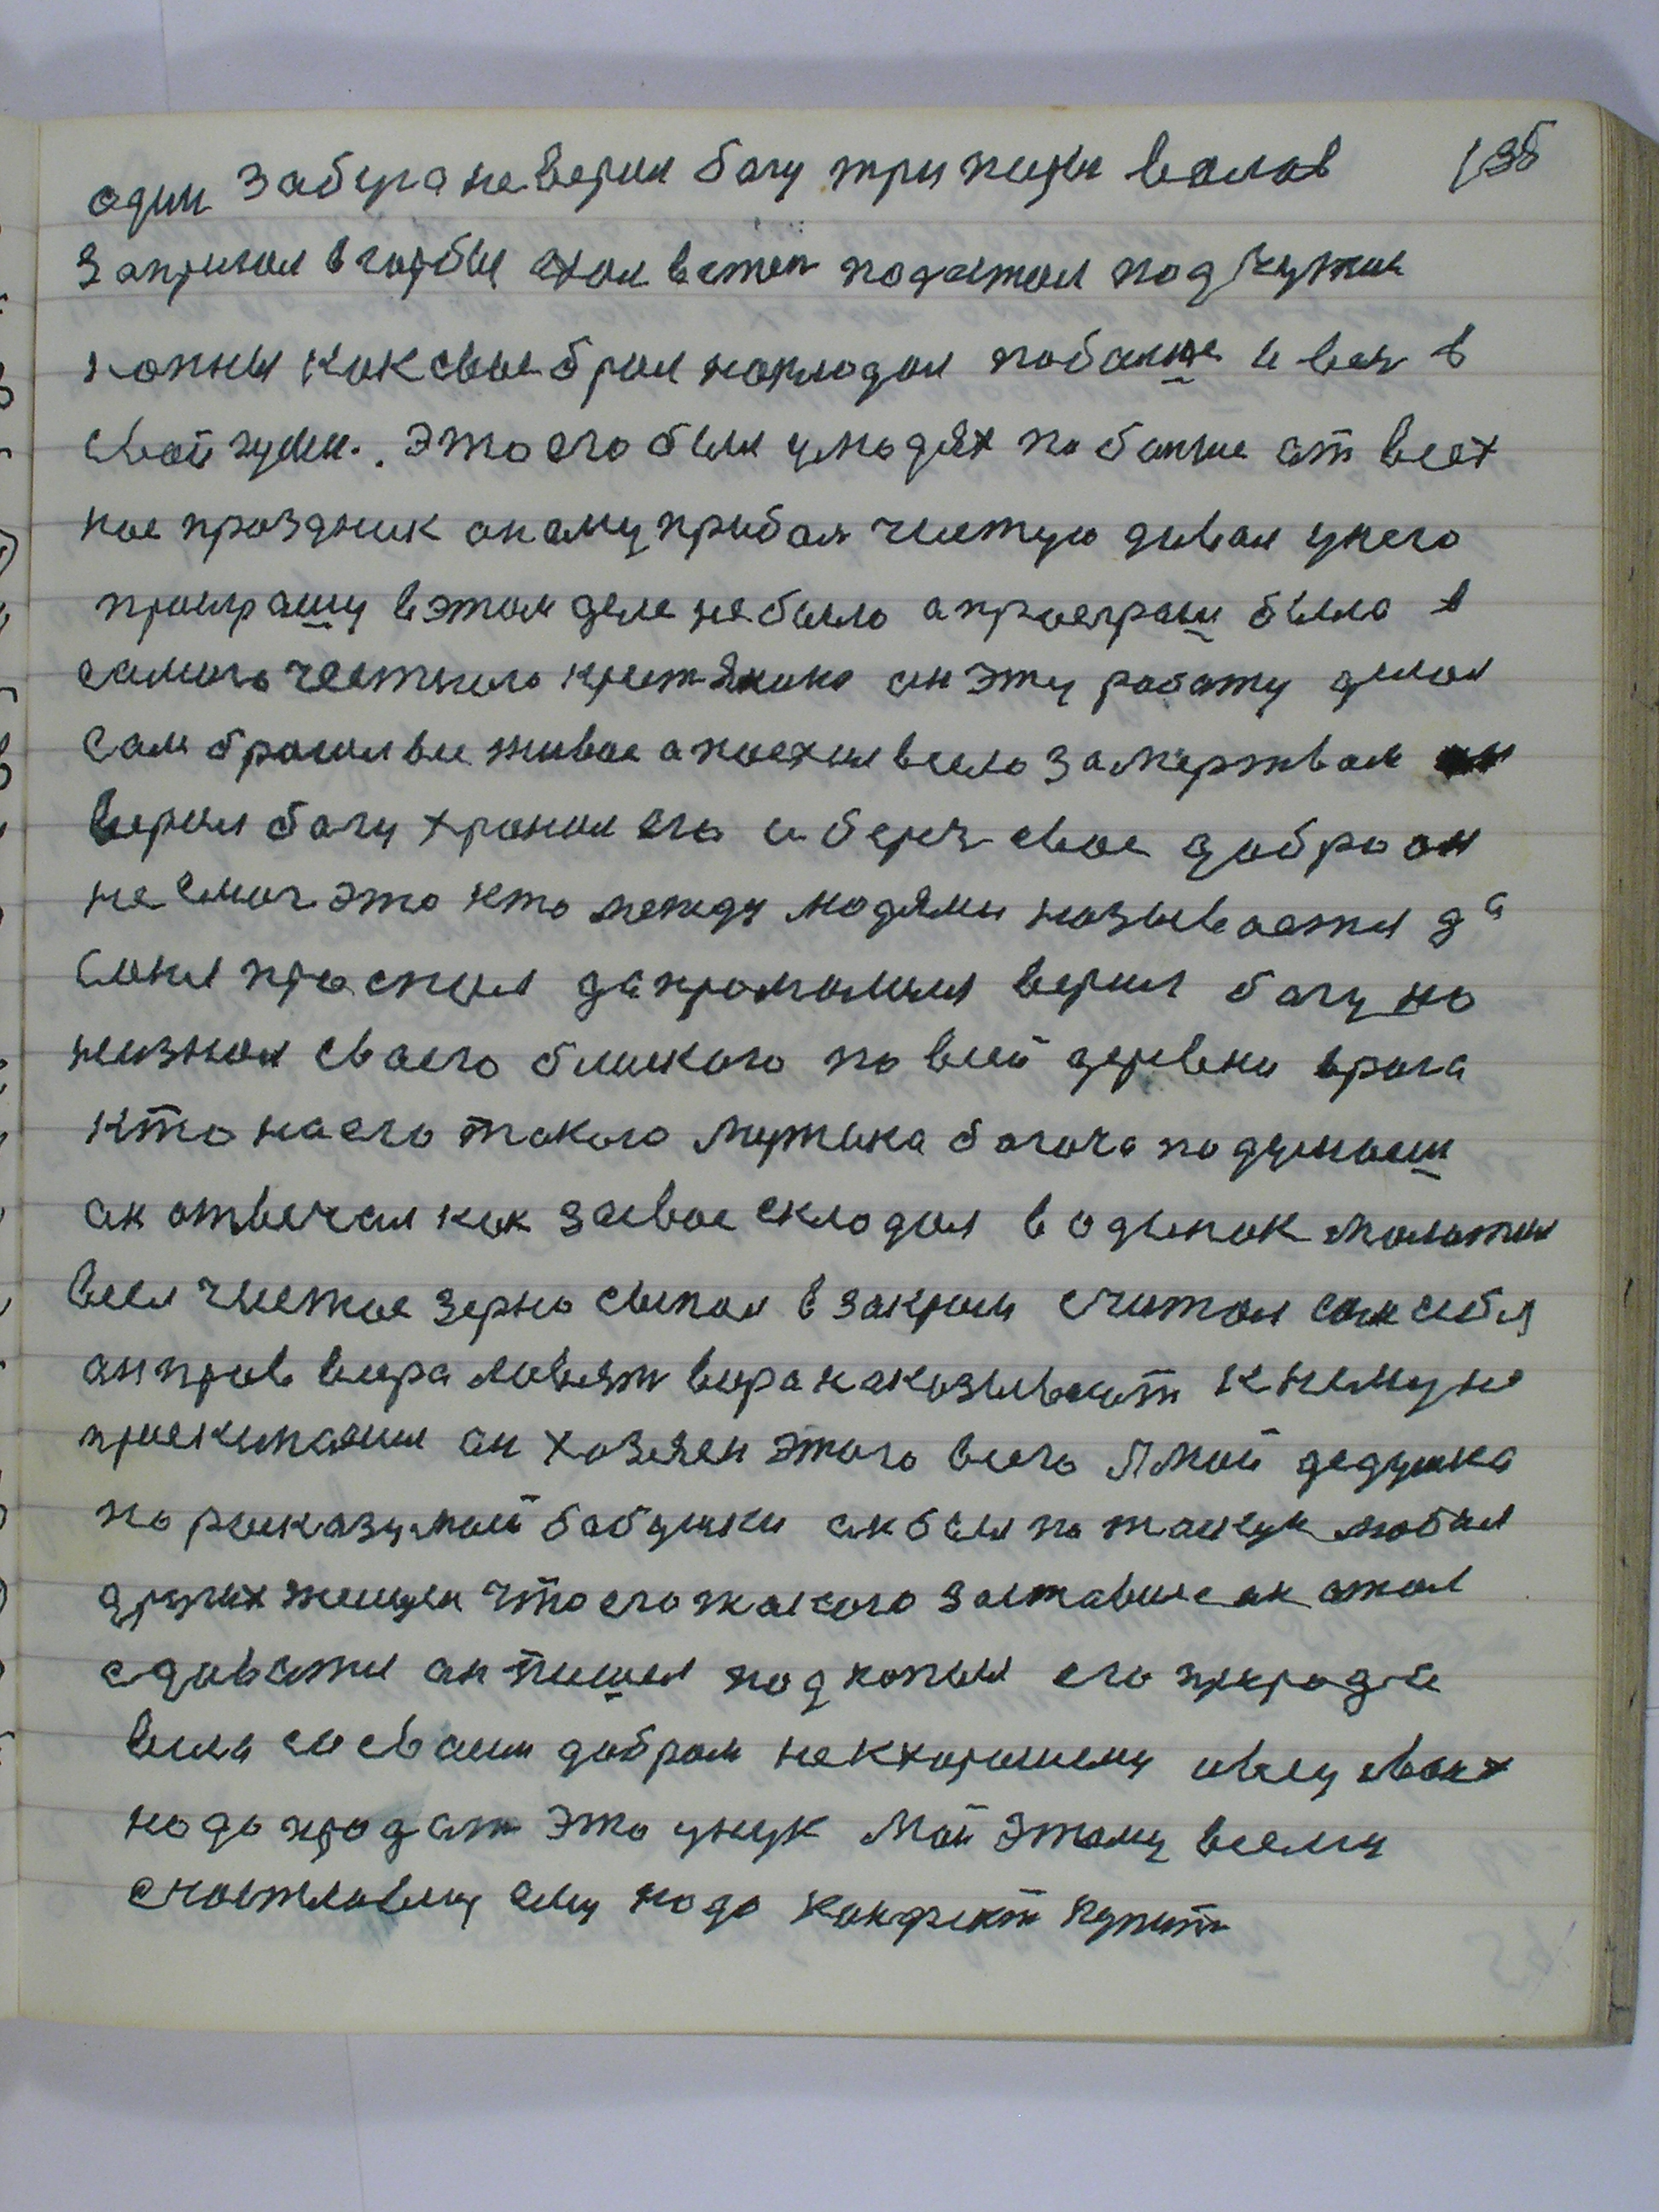 один забура не верил богу три пары волав 135
запрягал в гарбы ехал в степ подетал под чужии
копны как свое брал накладал побалше и вез в
свой гумен. Это его был у людях по балше от всех
как праздник он ему прибал чистую давал у него
проиграшу в этом деле не было а проеграш было в
самого честного крестянина он эту работу делал
сам бросил все живое а поехал всело за мертвам он
верил богу хранил его и берег свое добро он
не смог это кто между людями называется да
сонц проспал да промолился верил богу но
не знал своего близкого по всей деревни врага
кто на его такого мужика богача подумаеш
он отвечал как за свое складал в одынок молотил
веел чистое зерно сыпал в закром считал сам себя
он прав вора ловят вора наказывают к нему не
прискипалис он хозяен этого всего Я мой дедушка
по расказу мой бабушки он был по таму любил
других женщен что его такого заставило он стал
сдаватся он пишел под копны его природа
вила со сваим добром не к хорошему овец своих
надо продат это унук мой этому всему
счастлавец ему надо канфект купит